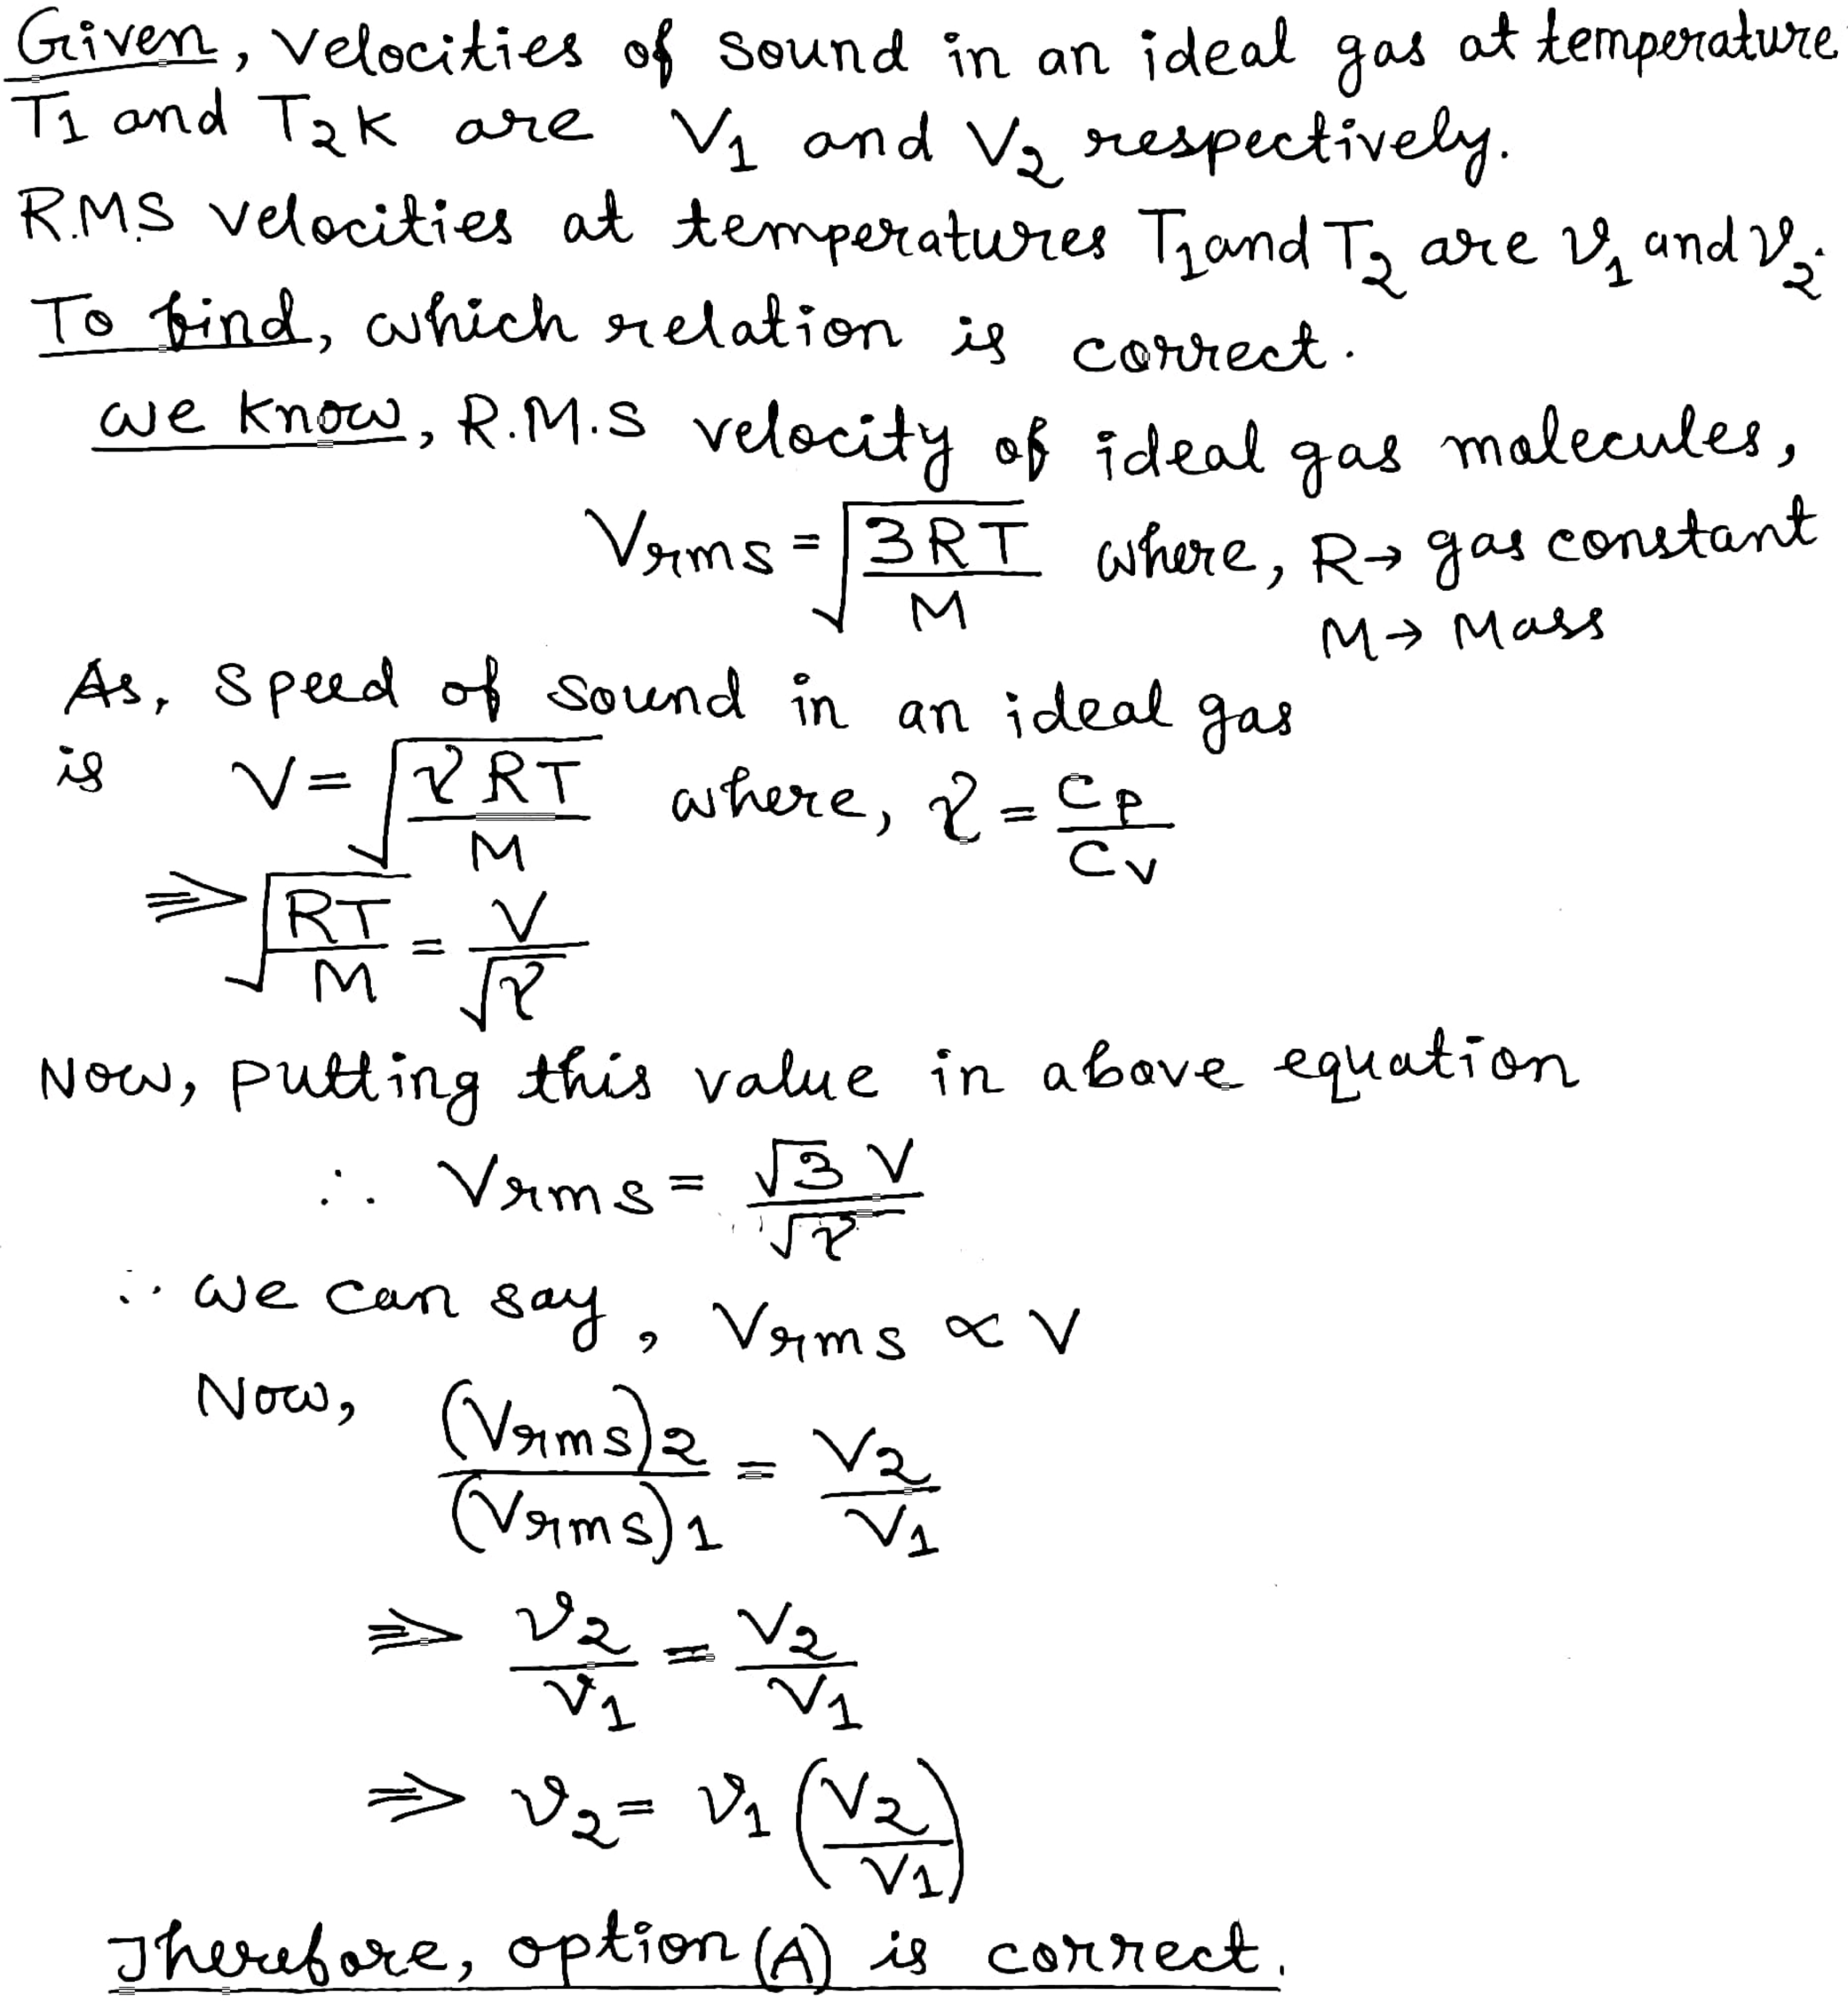 Given, velocities of sound in an ideal gas at temperature
T1 and T2K are V1 and V2 respectively.
R.M.S velocities at temperatures T1 and T2 are v1 and v2.
To find, which relation is correct.
we know, R.M.S velocity of ideal gas molecules,
Vrms = √(3RT/M) where, R → gas constant
M → Mass
As, speed of sound in an ideal gas
is V = √(γRT/M) where, γ = Cp/Cv
⇒ √(RT/M) = V/√γ
Now, putting this value in above equation
∴ Vrms = √3 V/√γ
∴ we can say, Vrms ∝ V
Now, (Vrms)2/(Vrms)1 = V2/V1
⇒ v2/v1 = V2/V1
⇒ v2 = v1 (V2/V1)
Therefore, option (A) is correct.